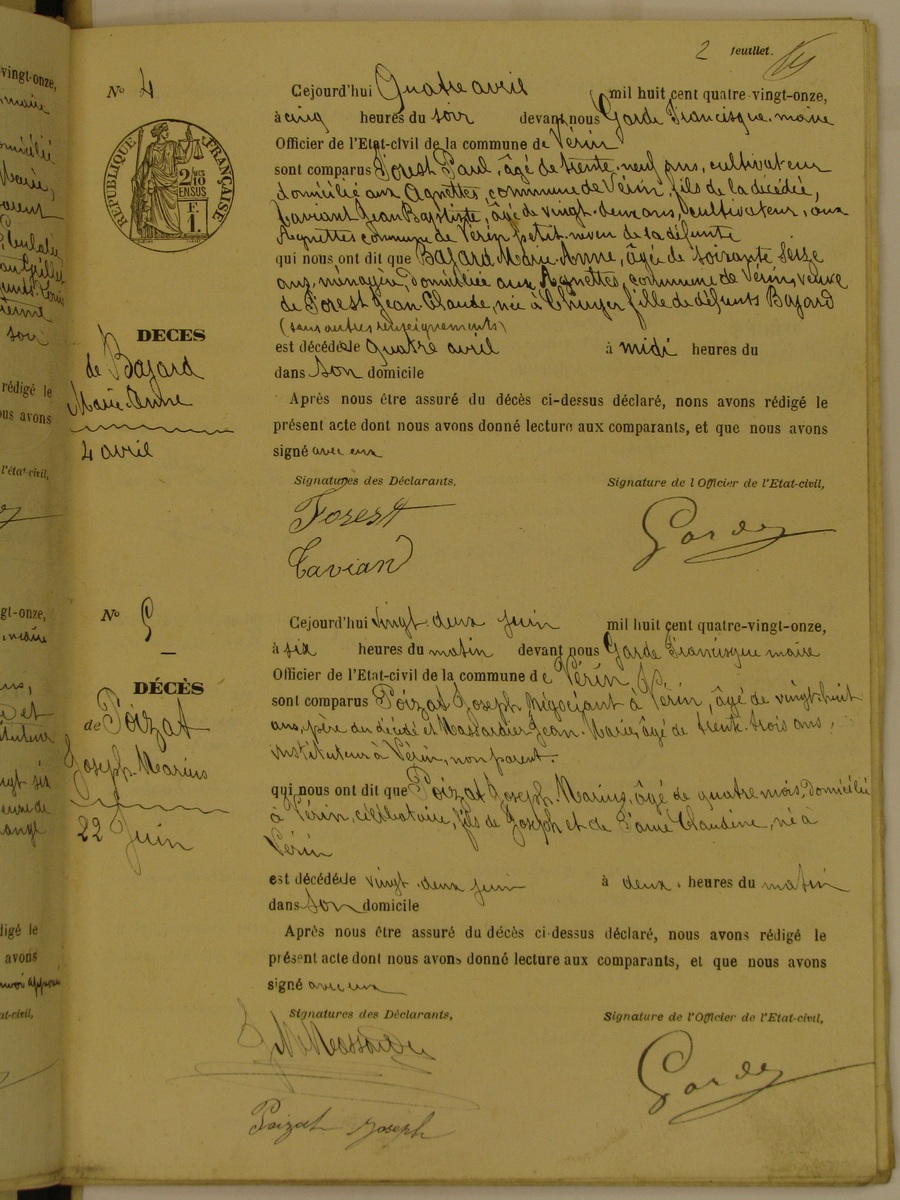 2 feuillet.
N° 4
Cejourd'hui Quatre avril mil huit cent quatre-vingt-onze,
à cinq heures du soir devant nous Garde Francisque, maire
Officier de l'Etat-civil de la commune de Vérin
sont comparus Forest Paul, âgé de trente-neuf ans, cultivateur
domicilié aux Agnettes, commune de Vérin, fils de la décédée,
Laviant Jean Baptiste, âgé de vingt-deux ans, cultivateur, aux
Agnettes commune de Vérin petit neveu de la défunte
qui nous ont dit que Bajard Marie-Anne, âgée de soixante seize
ans, ménagère, domiciliée aux Agnettes, commune de Vérin, veuve
de Forest Jean-Claude, née à fille de défunts Bajard
(sans autres renseignements)
est décédée le quatre avril à midi heures du
dans son domicile
Après nous être assuré du décès ci-dessus déclaré, nons avons rédigé le
présent acte dont nous avons donné lecture aux comparants, et que nous avons
signé avec eux
Signatures des Déclarants,
Signature de l Officier de l'Etat-civil,
Forest
Lavian
Garde
REPUBLIQUE FRANÇAISE
2/10 EN SUS
F. 1.
DECES
de Bajard
Marie-Anne
4 avril
N° 5
Cejourd'hui vingt-deux juin mil huit cent quatre-vingt-onze,
à six heures du matin devant nous Garde Francisque maire
Officier de l'Etat-civil de la commune de Vérin
sont comparus Poizat Joseph, négociant à Vérin, âgé de vingt-huit
ans, père du décédé et Massardier Jean-Marie, âgé de trente-trois ans,
instituteur à Vérin, non parent.
qui nous ont dit que Poizat Joseph-Marius, âgé de quatre mois, domicilié
à Vérin, célibataire, fils de Joseph et de Claudine, né à
Vérin
est décédé le vingt-deux juin à deux heures du matin
dans son domicile
Après nous être assuré du décès ci-dessus déclaré, nous avons rédigé le
présent acte dont nous avons donné lecture aux comparants, et que nous avons
signé avec eux
Signatures des Déclarants,
Signature de l'Officier de l'Etat-civil,
Poizat Joseph
Garde
DÉCÈS
de Poizat
Joseph-Marius
22 Juin